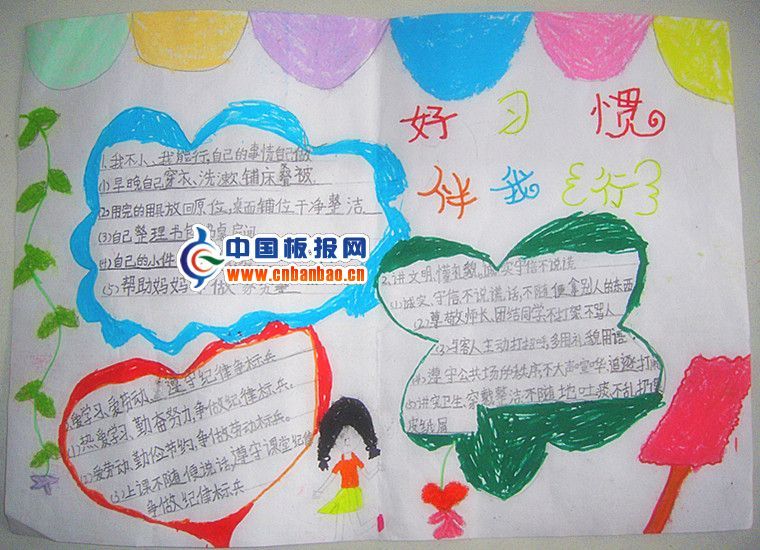 好习惯
伴我行
1.我不小、我能行,自己的事情自己做
(1)早晚自己穿衣、洗漱、铺床叠被
(2)用完的用具放回原位,桌面铺位干净整洁
(3)自己整理书包
(4)自己的小件
(5)帮助妈妈 做
中国板报网
www.cnbanbao.cn
2.讲文明、懂礼貌,诚实守信不说谎
(1)诚实、守信不说谎话,不随便拿别人的东西
(2)尊敬师长、团结同学不打架不骂人
(3)与客人主动打招呼,多用礼貌用语。
(4)遵守公共场所秩序,不大声喧哗、追逐打闹
(5)讲究卫生、穿戴整洁不随地吐痰不乱扔果
皮纸屑
爱学习、爱劳动、遵守纪律争标兵
(1)热爱学习、勤奋努力,争做纪律标兵。
(2)爱劳动、勤俭节约,争做劳动标兵。
(3)上课不随便说话,遵守课堂纪律
争做纪律标兵